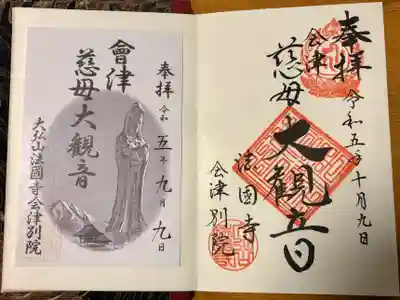 奉拝
令和五年十月九日
会津
慈母大観音
法國寺
会津別院
奉拝 令和五年九月九日
會津
慈母大観音
大仏山法國寺会津別院